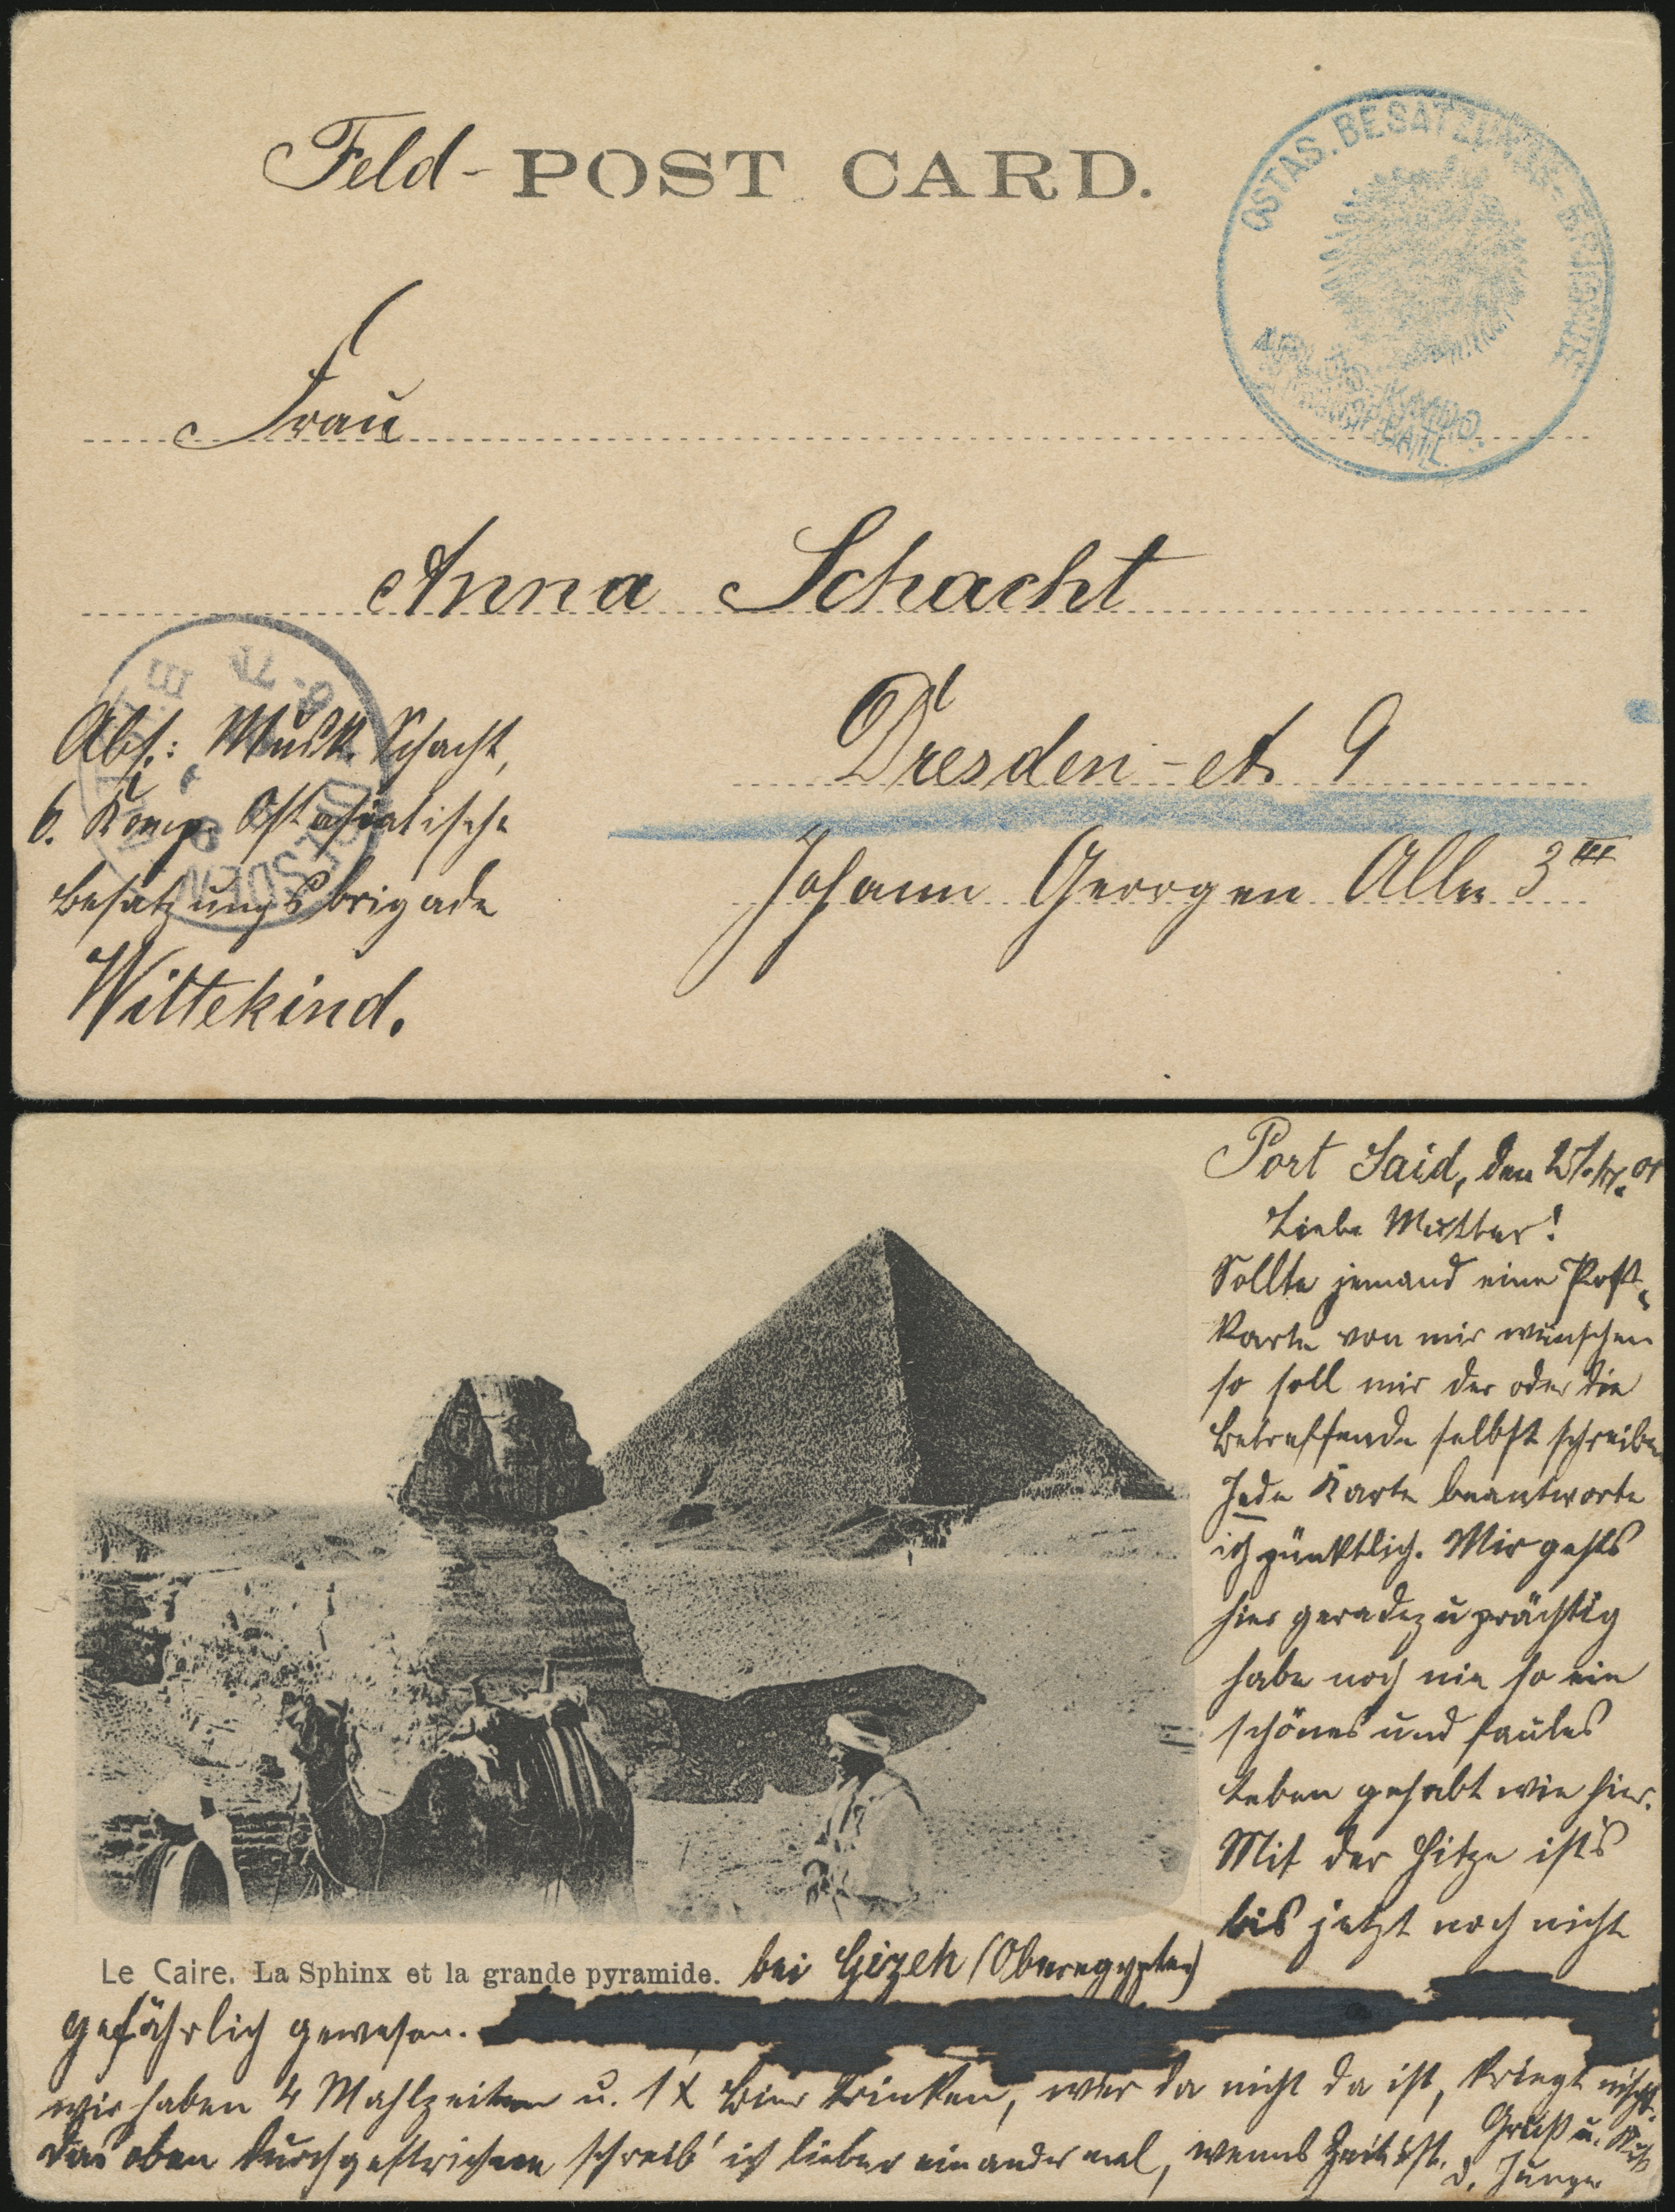 Feld- POST CARD.
OSTAS. BESATZUNGS-BRIGADE
Frau
Anna Schacht
Dresden-A. 9
Johann Georgen Allee 3 III
DRESDEN
Abs.: Musk. Schacht,
6. Komp. Ostasiatische
Besatzungsbrigade
Wittekind.
Port Said, den
Liebe Mutter!
Sollte jemand eine Post-
karte von mir wünschen
so soll mir der oder die
Betreffende selbst schreiben
Jede Karte beantworte
ich pünktlich. Mir gehts
hier geradezu prächtig
habe noch nie so ein
schönes und faules
Leben gehabt wie hier.
Mit der Hitze ists
bis jetzt noch nicht
Le Caire. La Sphinx et la grande pyramide. bei Gizeh (Oberegypten)
gefährlich gewesen.
wir haben 4 Mahlzeiten u. 1 X Bier trinken, wer da nicht da ist, kriegt nischt.
Das oben durchgestrichene schreib' ich lieber ein ander mal, wenns Zeit ist. Gruß u. Kuß
d. Junge